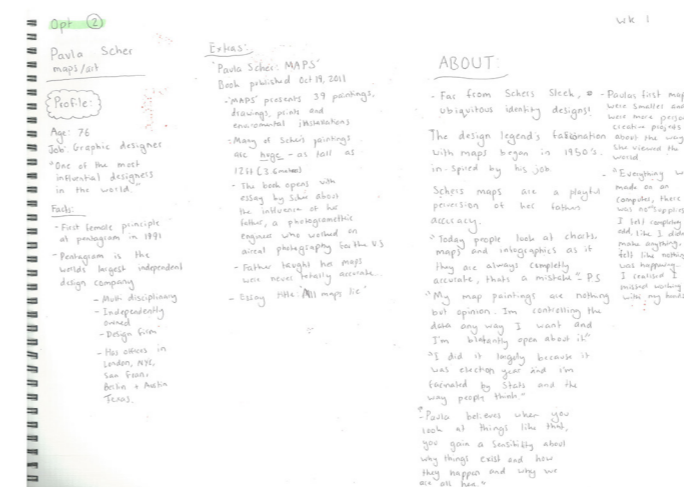 Opt 2
wk 1
Paula Scher
maps/art
Profile:
Age: 76
Job: Graphic designer
"One of the most
influential designers
in the world."
Facts:
- First female principle
at pentagram in 1991
- Pentagram is the
worlds largest independent
design company
- Multi disciplinary
- Independently
owned
- Design firm
- Has offices in
London, NYC,
San Fran,
Berlin + Austin
Texas.
Extras:
'Paula Scher: MAPS'
Book published Oct 19, 2011
- 'MAPS' presents 39 paintings,
drawings, prints and
- Many of Scher's paintings
are huge - as tall as
12ft
- The book opens with
essay by Scher about
the influence of her
father, a photogramethic
engineer who worked on
aireal photography for the U.S
- Father taught her maps
were never totally accurate..
- Essay title "All maps lie"
ABOUT:
- Far from Schers Sleek,
ubiquitous identity designs!
The design legend's
with maps began in 1950's.
in-spired by his job
Schers maps are a playful
perversion of her fathers
accuracy.
"Today people look at charts
maps and infographics as if
they are always completly
accurate, thats a mistake" - P.S
"My map paintings are nothing
but opinion. Im controlling the
data any way I want and
I'm blatantly open about it"
"I did it largely because it
was election year and i'm
by Stats and the
way people think."
- Paula believes when you
look at things like that,
you gain a about
why things exist and how
they happen and why we
are all here
- Paulas first map
were smaller and
were more person
creative projects
about the way
she viewed the
world
- "Everything w
made on an
computer, there
was no supplies
I felt
odd, like I didn
make anything.
felt like nothin
was happening.
I realised I
missed working
with my hands